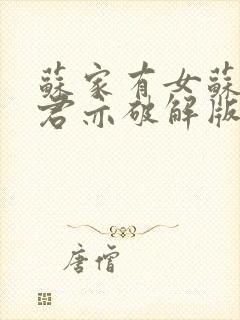 蘇家有女蘇
君亦破解版
唐僧